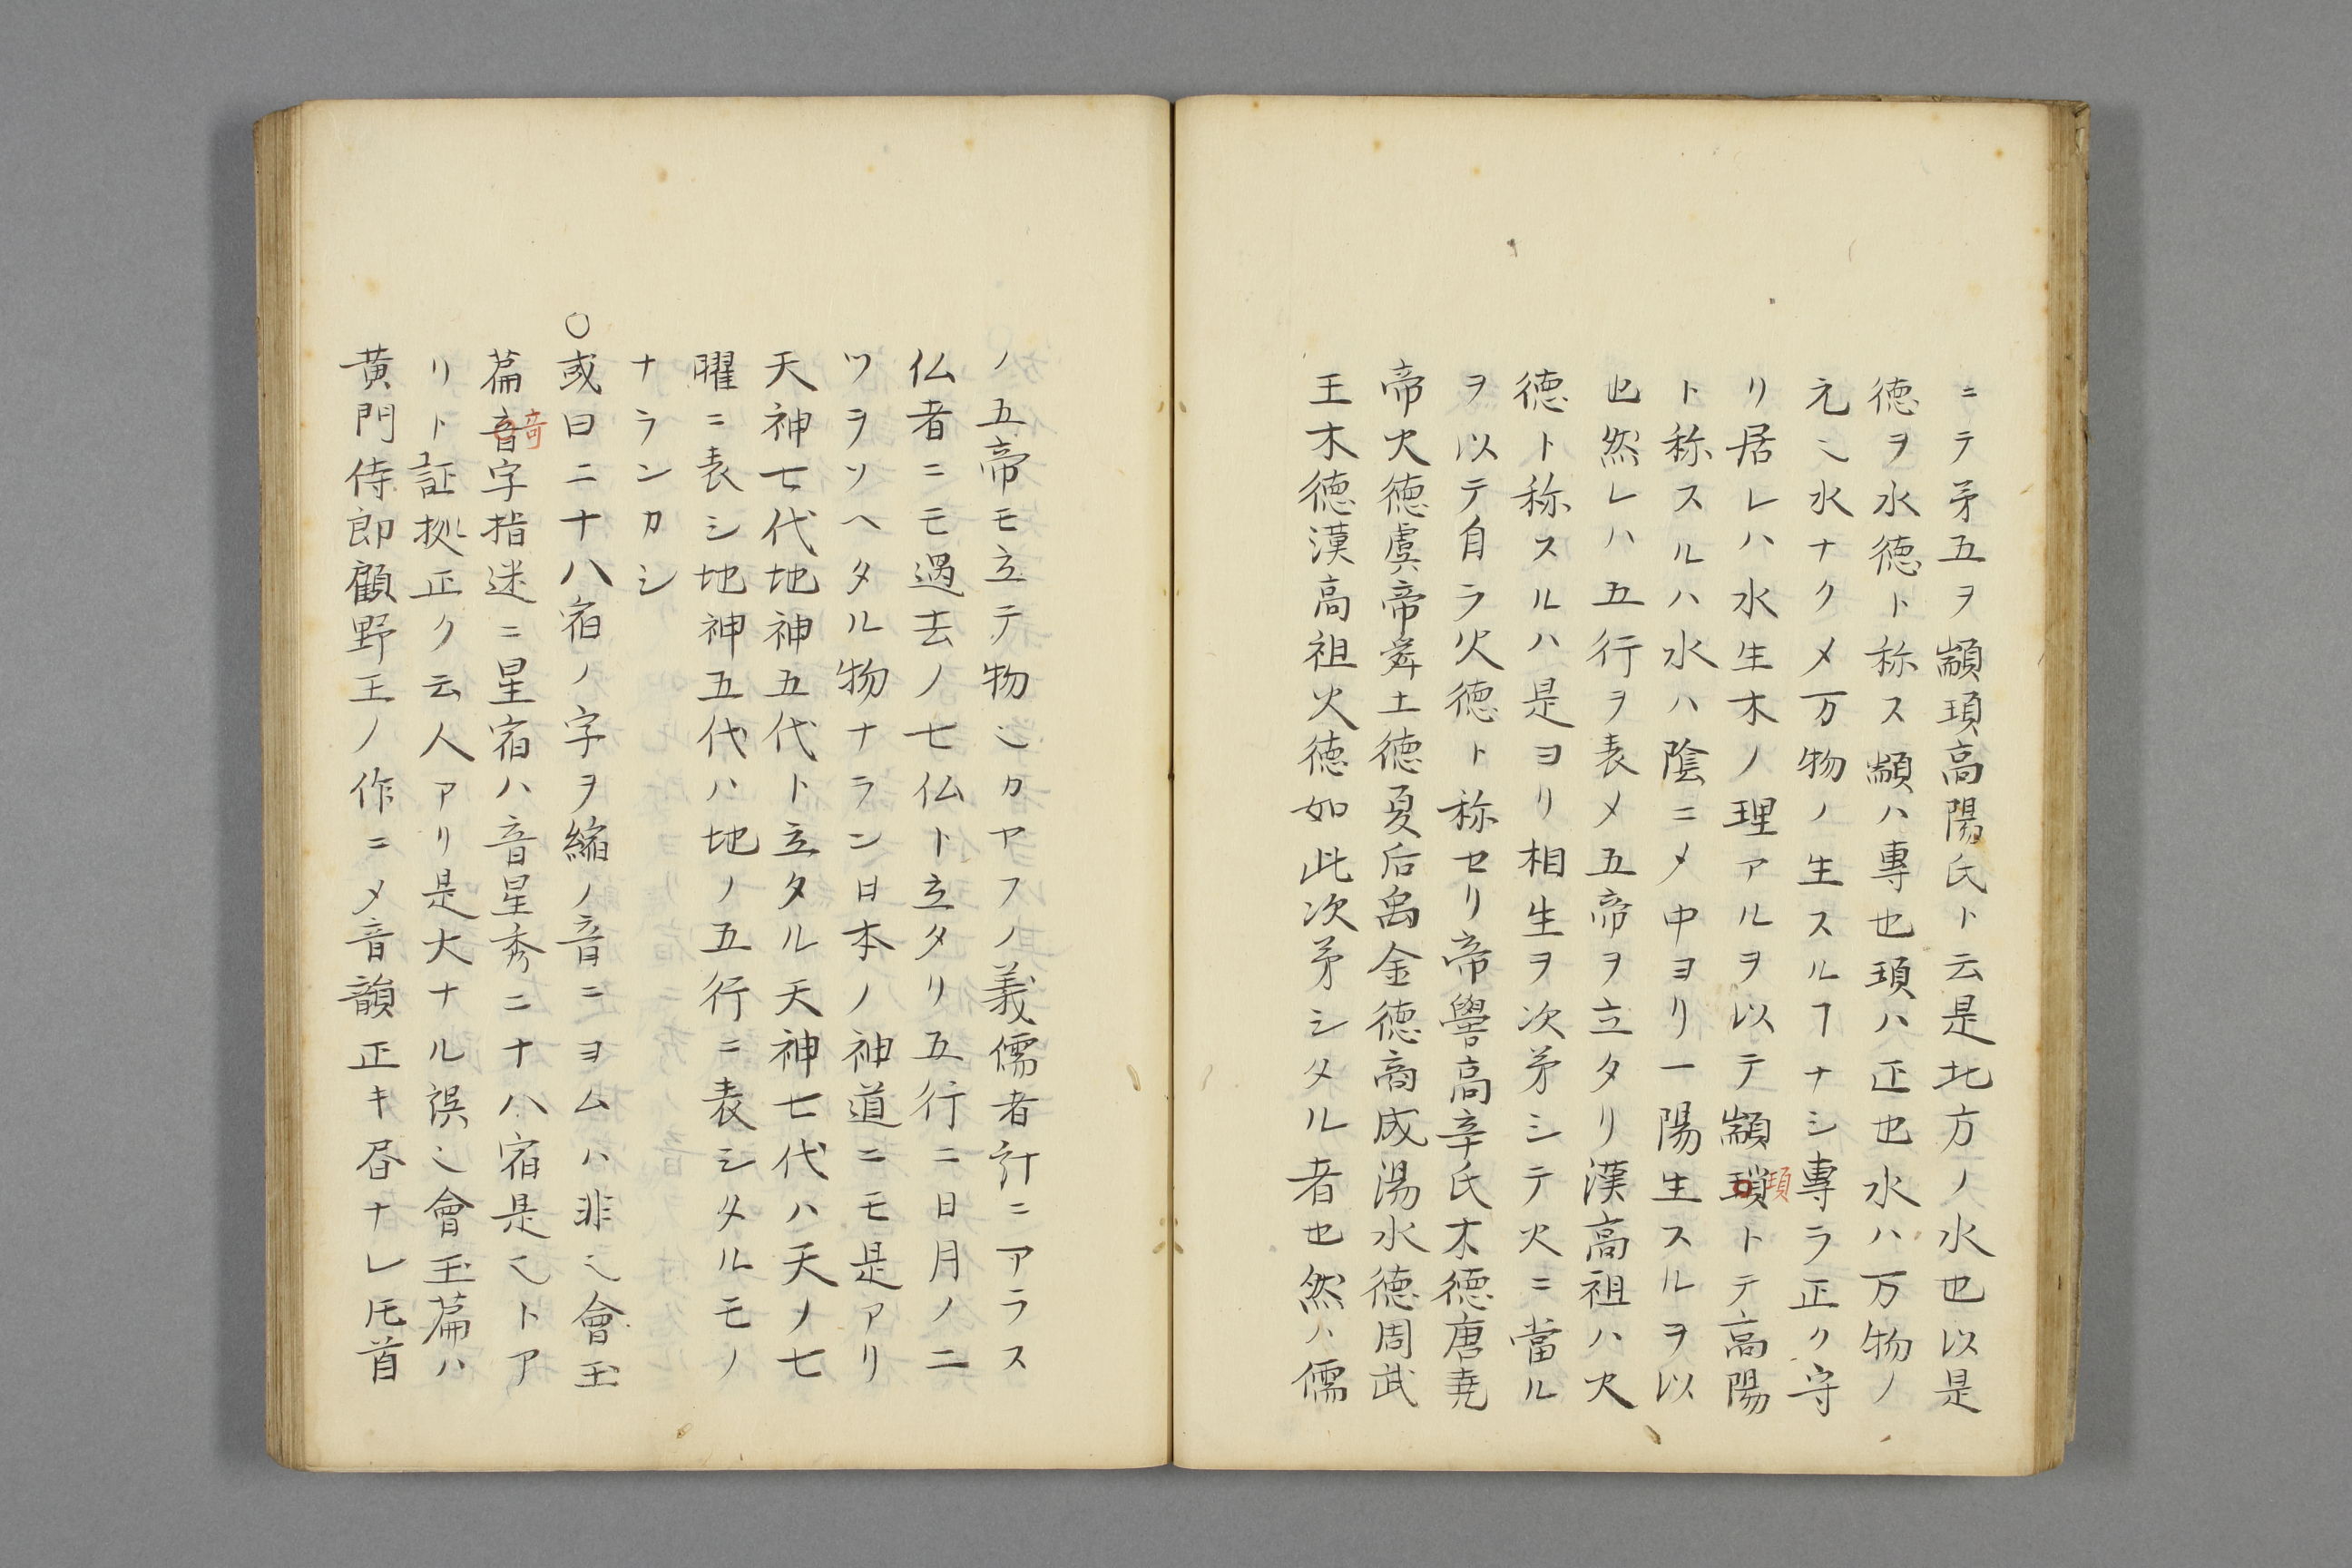 ニテ㐧五ヲ顓頊高陽氏ト云是北方ノ水也以是
徳ヲ水徳ト称ス顓ハ專也頊ハ正也水ハ万物ノ
元〻水ナクメ万物ノ生スルヿナシ專ラ正ク守
リ居レハ水生木ノ理アルヲ以テ顓瑣トテ高陽
頊
ト称スルハ水ハ陰ニメ中ヨリ一陽生スルヲ以
也然レハ五行ヲ表メ五帝ヲ立タリ漢高祖ハ火
徳ト称スルハ是ヨリ相生ヲ次㐧シテ火ニ當ル
ヲ以テ自ラ火徳ト称セリ帝嚳高辛氏木徳唐堯
帝火徳虞帝舜土徳夏后禹金徳商成湯水徳周武
王木徳漢高祖火徳如此次㐧シタル者也然ハ儒
ノ五帝モ立テ物〻カヤフノ義儒者計ニアラス
仏者ニモ過去ノ七仏ト立タリ五行ニ日月ノ二
ツヲソヘタル物ナラン日本ノ神道ニモ是アリ
天神七代地神五代ト立タル天神七代ハ天ノ七
曜ニ表シ地神五代ハ地ノ五行ニ表シタルモノ
ナランカシ
○或曰二十八宿ノ字ヲ縮ノ音ニヨムハ非〻會玉
篇音字指迷ニ星宿ハ音星秀二十八宿是〻トア
竒
リト証拠正ク云人アリ是大ナル誤〻會玉篇ハ
黄門侍郎顧野王ノ作ニメ音韻正キ昏ナレ㡯首